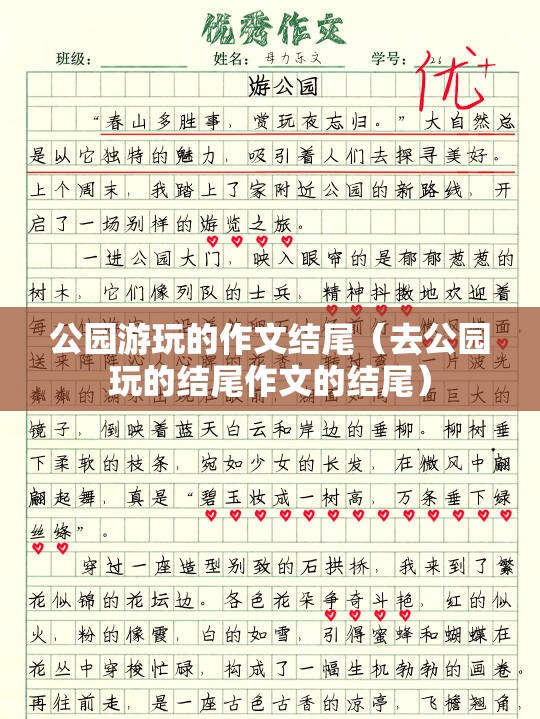 优秀作文
班级： 姓名：母力乐文 学号：26
优+
游公园
“春山多胜事，赏玩夜忘归。”大自然总
是以它独特的魅力，吸引着人们去探寻美好。
上个周末，我踏上了家附近公园的新路线，开
启了一场别样的游览之旅。
一进公园大门，映入眼帘的是郁郁葱葱的
树木，它们像列队的士兵，精神抖擞地欢迎着
公园游玩的作文结尾（去公园
玩的结尾作文的结尾）
镜子，倒映着蓝天白云和岸边的垂柳。柳树垂
下柔软的枝条，宛如少女的长发，在微风中翩
翩起舞，真是“碧玉妆成一树高，万条垂下绿
丝绦”。
穿过一座造型别致的石拱桥，我来到了繁
花似锦的花坛边。各色花朵争奇斗艳，红的似
火，粉的像霞，白的如雪，引得蜜蜂和蝴蝶在
花丛中穿梭忙碌，构成了一幅生机勃勃的画卷。
再往前走，是一座古色古香的凉亭，飞檐翘角，